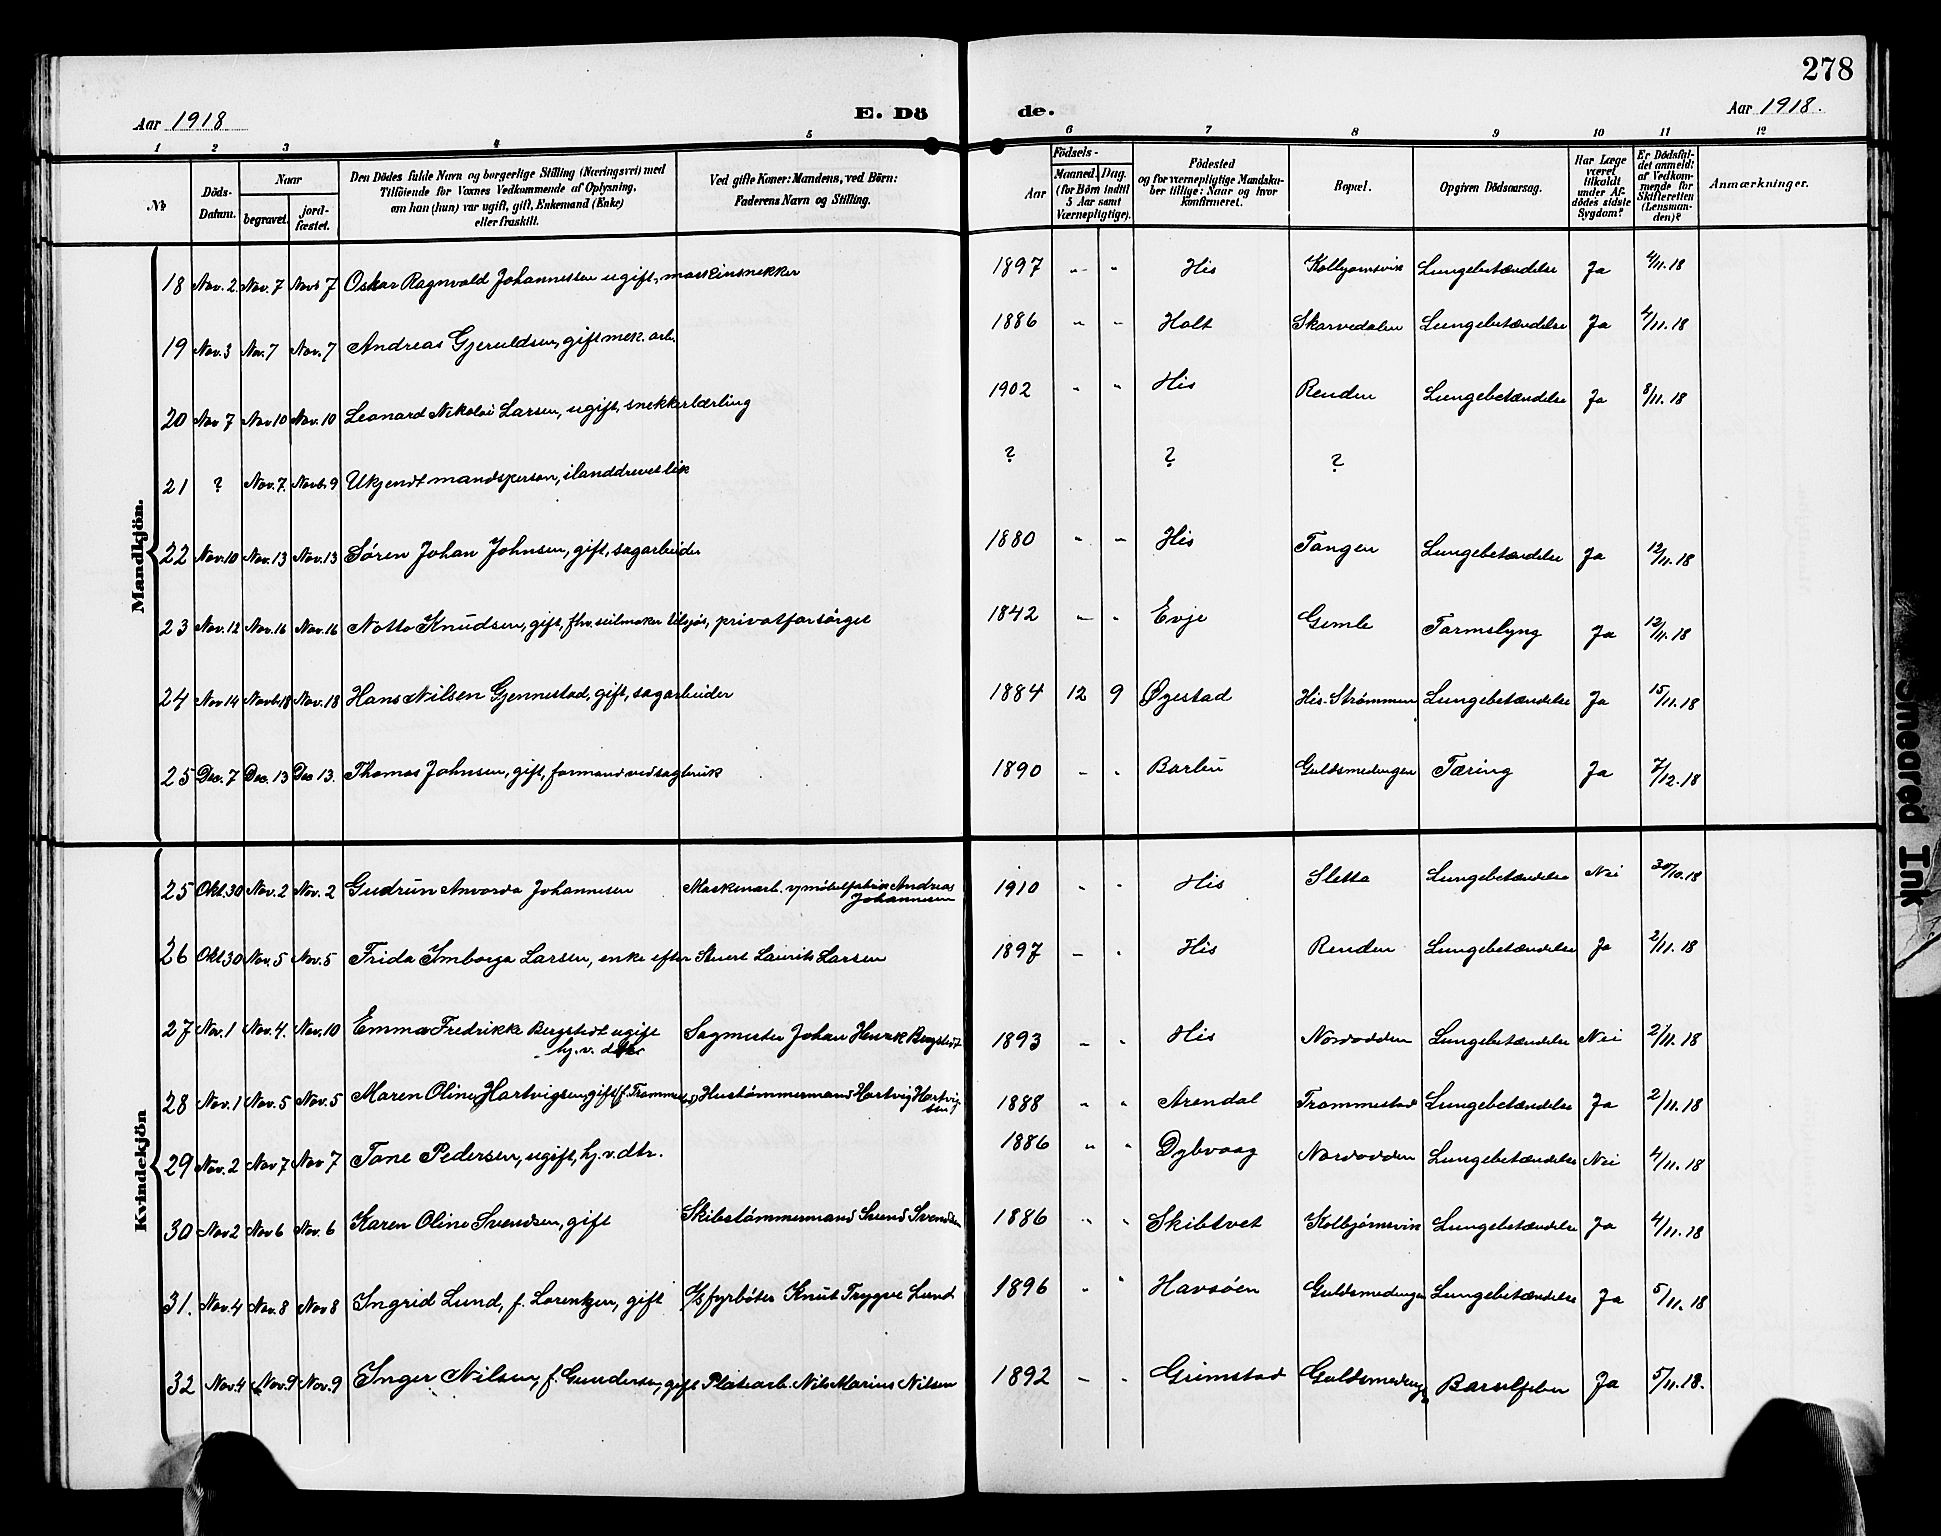 278
Aar 1918
E. Dö
de.
Aar 1918.
1 2 3 4 5 6 7 8 9 10 11 12
№
Döds-Datum.
Naar
begravet.
jord-fæstet.
Den Dödes fulde Navn og borgerlige Stilling (Næringsvei) med
Tilföiende for Voxnes Vedkommende af Oplysning,
om han (hun) var ugift, gift, Enkemand (Enke)
eller fraskilt.
Ved gifte Koner: Mandens, ved Börn:
Faderens Navn og Stilling.
Födsels-
Aar
Maaned. Dag.
(for Börn indtil
5 Aar samt
Værnepligtige).
Födested
og for værnepligtige Mandska-
ber tillige: Naar og hvor
konfirmeret.
Bopæl.
Opgiven Dödsaarsag.
Har Læge
været
tilkaldt
under Af-
dödes sidste
Sygdom?
Er Dödsfal-
det anmeldt
af Vedkom-
mende for
Skifteretten
(Lensman-
den)?
Anmærkninger.
Mandkjön.
18 Nov. 2 Nov. 7 Novb 7 Oskar Ragnvald Johannessen ugift, maskinsnekker 1897 " " His Kolbjørnsvik Lungebetændelse Ja 4/11. 18
19 Nov. 3 Nov. 7 Nov. 7 Andreas Gjeruldsen, gift mek. arb. 1886 " " Holt Skarvedalen Lungebetændelse Ja 4/11. 18
20 Nov 7 Nov 10 Nov. 10 Leonard Nikolai Larsen, ugift, snekkerlærling 1902 " " His Renden Lungebetændelse Ja 8/11. 18
21 ? Nov. 7. Novb. 9 Ukjendt mandsperson, ilanddrevet lik ? ? ?
22 Nov. 10 Nov. 13 Nov. 13 Søren Johan Johnsen, gift, sagarbeider 1880 " " His Tangen Lungebetændelse Ja 12/11. 18
23 Nov. 12 Nov. 16 Nov. 16 Notto Knudsen, gift, fhv. seilmaker tilsjøs, privatforsørget 1842 " " Evje Gimle Tarmslyng Ja 12/11. 18
24 Nov 14 Novb. 18 Nov. 18 Hans Nilsen Gjennestad, gift, sagarbeider 1884 12 9 Øyestad His-Strømmen Lungebetændelse Ja 15/11. 18
25 Dec. 7 Dec. 13 Dec 13. Thomas Johnsen, gift, formand ved sagbruk 1890 " " Barbu Guldsmedengen Tæring Ja 7/12. 18
Kvindekjön
25 Okt. 30 Nov. 2 Nov. 2 Gudrun Anvorda Johannesen Maskinarb. v/ møbelfabrik Andreas
Johannesen 1910 " " His Sletta Lungebetændelse Nei 30/10. 18
26 Okt 30 Nov. 5 Nov. 5 Frida Imborga Larsen, enke efter Stuert Laurits Larsen 1897 " " His Renden Lungebetændelse Ja 2/11. 18
27 Nov. 1 Nov. 4. Nov. 10 Emma Fredrikke Bergstedt ugift
hj. v. dtr Sagmester Johan Henrik Bergstedt 1893 " " His Nordodden Lungebetændelse Nei 2/11. 18
28 Nov. 1 Nov. 5 Nov. 5 Maren Oline Hartvigsen, gift Hustømmermand Hartvig Hartvig-
sen 1888 " " Arendal Trommestad Lungebetændelse Ja 2/11. 18
29 Nov. 2 Nov 7 Nov 7 Tone Pedersen, ugift, hj. v. dtr. 1886 " " Dybvaag Nordodden Lungebetændelse Nei 4/11. 18
30 Nov 2 Nov 6 Nov. 6 Karen Oline Svendsen, gift Skibstømmermand Svend Svendsen 1886 " " Skibtvet Kolbjørnsvik Lungebetændelse Ja 4/11. 18
31. Nov. 4 Nov. 8 Nov 8 Ingrid Lund, f. Lorentzen, gift fyrbøter Knut Trygve Lund 1896 " " Havsøen Guldsmedengen Lungebetændelse Ja 5/11. 18
32 Nov. 4 Nov. 9 Nov. 9 Inger Nilsen, f. Gundersen, gift Platearb. Nils Marius Nilsen 1892 " " Grimstad Guldsmedengen Barselfeber Ja 5/11. 18.
Smeared Ink